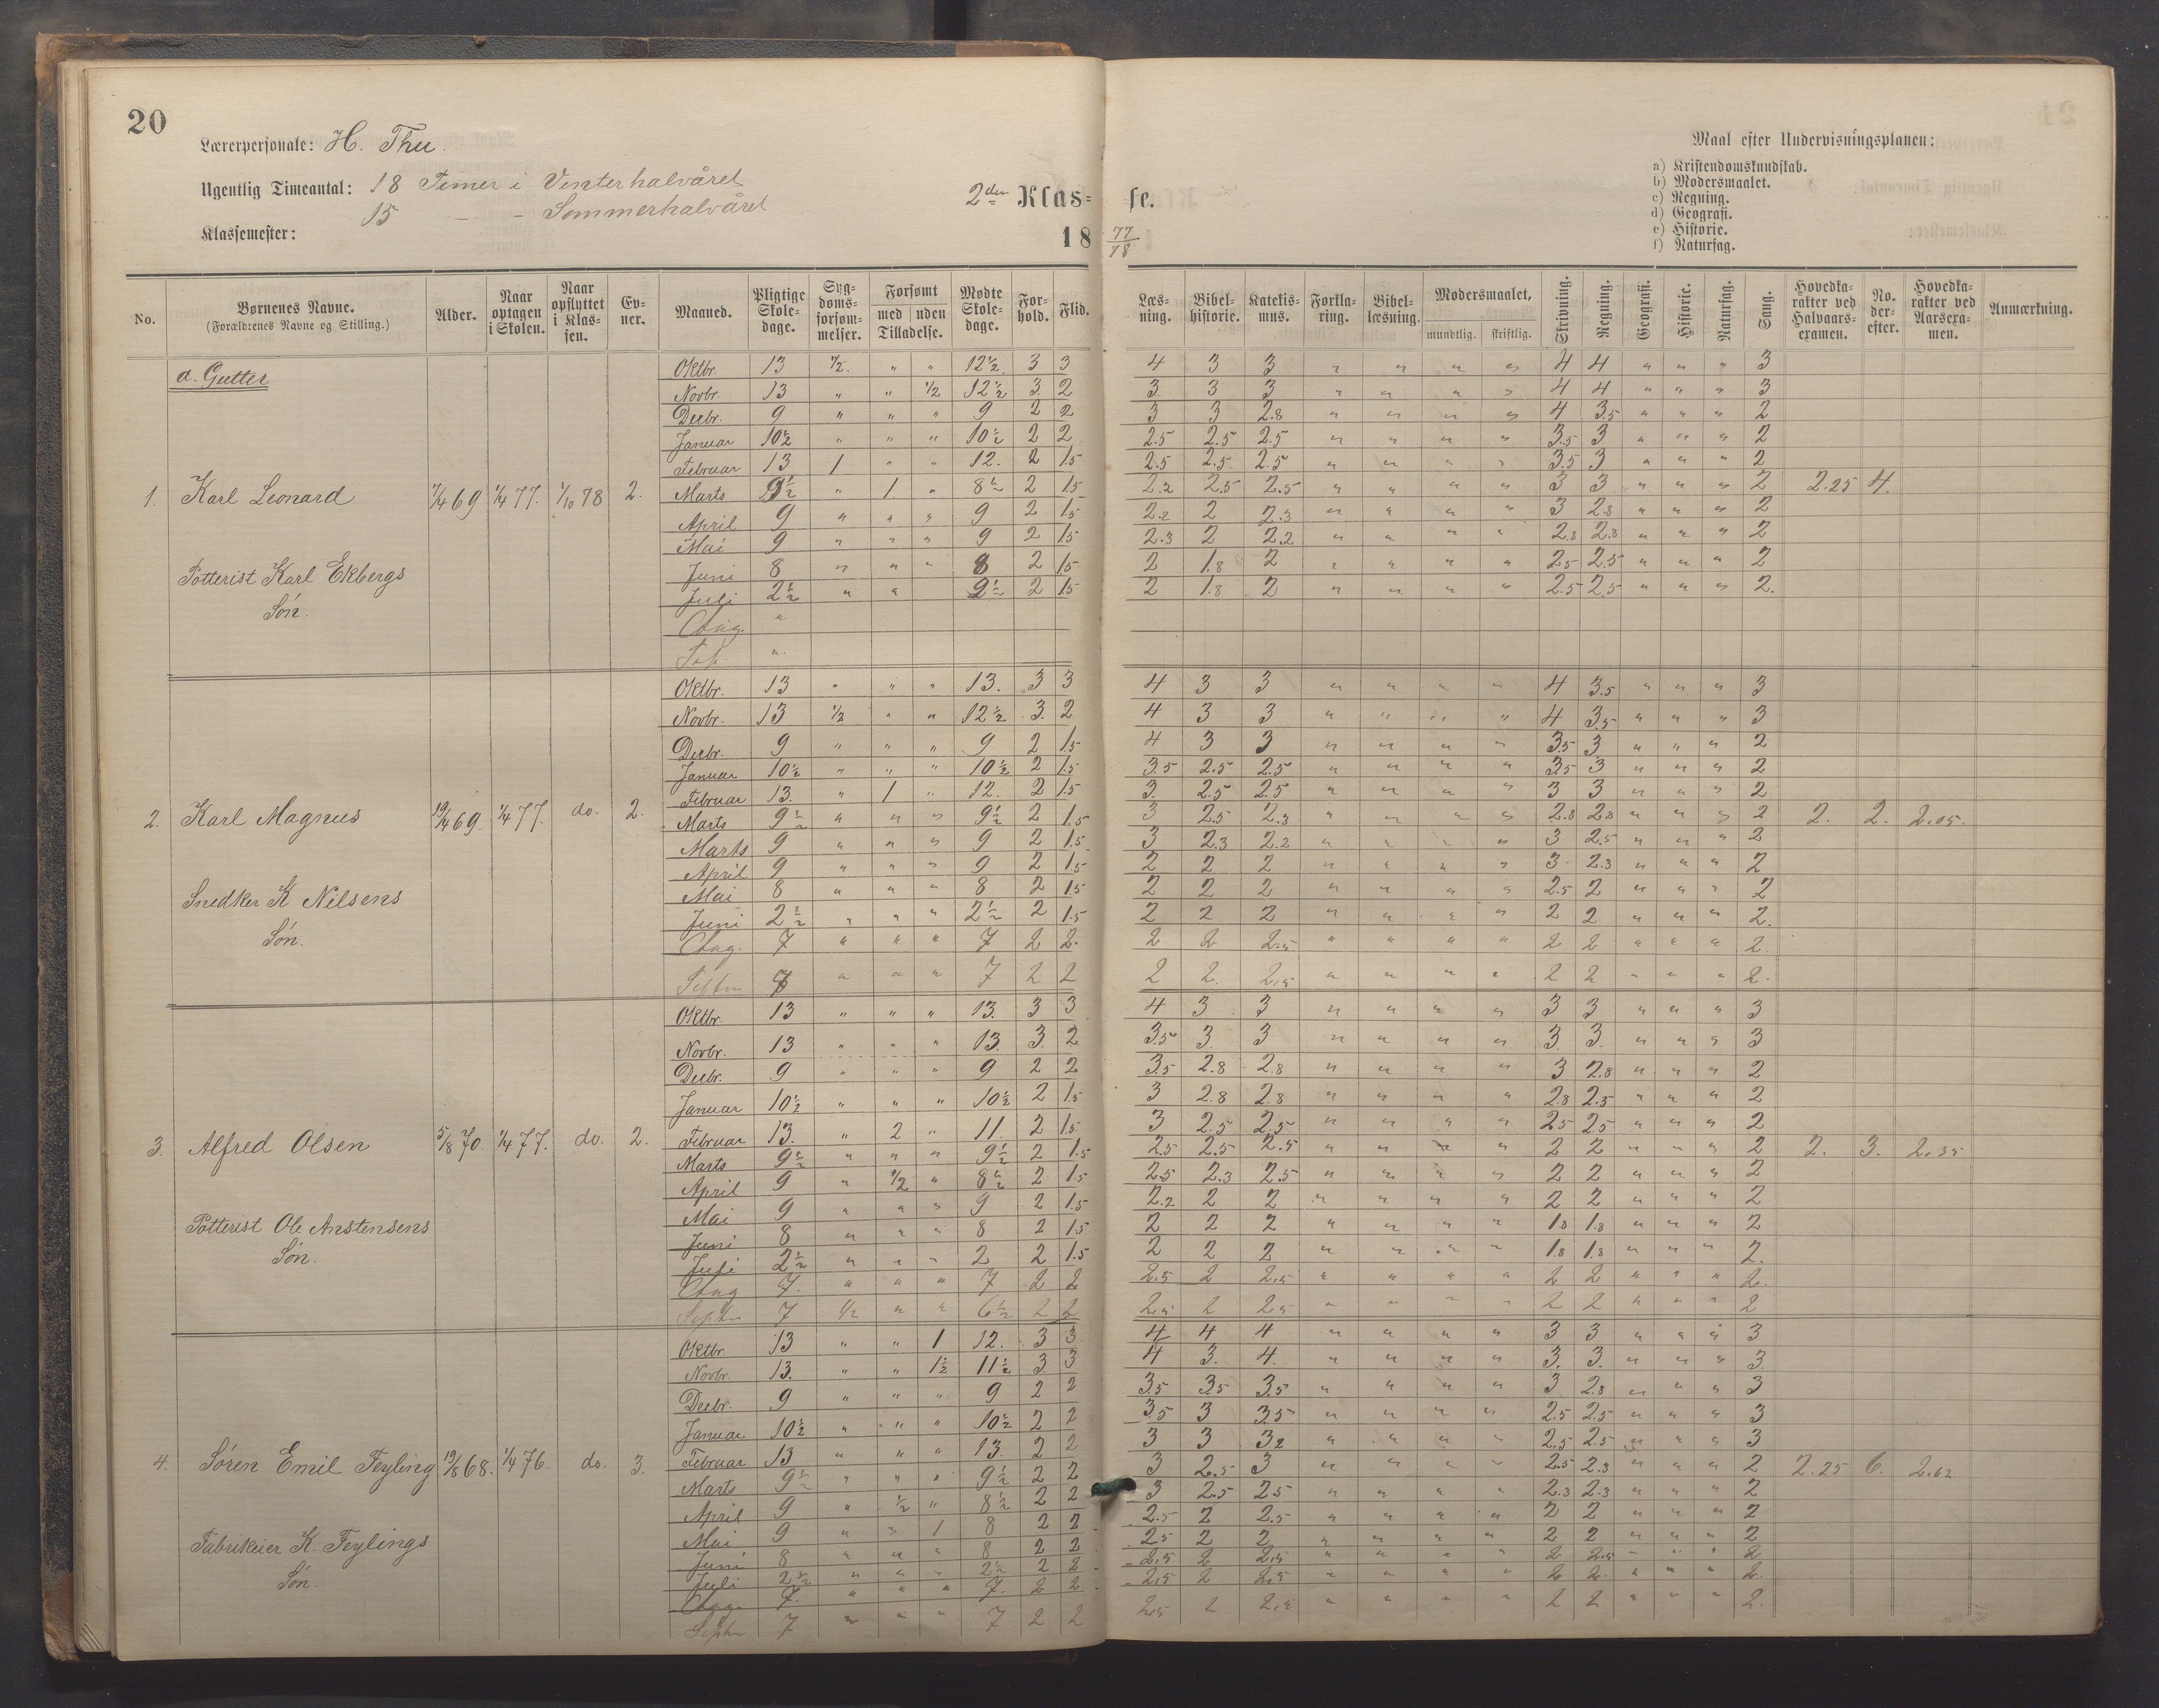 20
Lærerpersonale: H. Thu.
Maal efter Undervisningsplanen:
a) Kristendomskundskab.
b) Modersmaalet.
c) Regning.
d) Geografi.
e) Historie.
f) Naturfag.
Ugentlig Timeantal: 18 Timer i Vinterhalvåret
15 – – Sommerhalvåret
2den Klas- se.
Klassemester:
18 77/78
No. Børnenes Navne. (Forældrenes Navne og Stilling.) Alder. Naar optagen i Skolen. Naar opflyttet i Klassen. Evner. Maaned. Pligtige Skoledage. Sygdomsforsømmelser. Forsømt med uden Tilladelse. Mødte Skoledage. Forhold. Flid. Læsning. Bibelhistorie. Katekismus. Forklaring. Bibellæsning. Modersmaalet, mundtlig. skriftlig. Skrivning. Regning. Geografi. Historie. Naturfag. Sang. Hovedkarakter ved Halvaarsexamen. No. derefter. Hovedkarakter ved Aarsexamen. Anmærkning.
a. Gutter
Oktbr. 13 1/2. " " 12 1/2. 3 3 4 3 3 " " " " 4 4 " " " 3
Novbr. 13 " " 1/2 12 1/2 3. 2 3 3 3 " " " " 4 4 " " " 3
Decbr. 9 " " " 9 2 2 3 3 2.8 " " " " 4 3.5 " " " 2
Januar 10 1/2 " " " 10 1/2 2 2 2.5 2.5 2.5 " " " " 3.5 3 " " " 2
Februar 13 1 " " 12. 2 1.5 2.5 2.5. 2.5 " " " " 3.5 3 " " " 2
1. Karl Leonard 7/4 69 1/4 77. 1/10 78 2. Marts 9 1/2 " 1 " 8 1/2 2 1.5 2.2 2.5 2.5 " " " " 3 3 " " " 2 2.25 4.
April 9 " " " 9 2 1.5 2.2 2 2.3 " " " " 3 2.8 " " " 2
Mai 9 " " " 9 2 1.5 2.3 2 2.2 " " " " 2.8 2.8 " " " 2
Potterist Karl Ekbergs Juni 8 " " " 8 2 1.5 2 1.8 2 " " " " 2.5 2.5 " " " 2
Søn. Juli 2 1/2 " " 2 1/2 2 1.5 2 1.8 2 " " " " 2.5 2.5 " " " 2.
Aug. "
Sep. "
Oktbr. 13 " " " 13. 3 3 4 3 3 " " " " 4 3.5 " " " 3
Novbr. 13 1/2 " " 12 1/2 3. 2 4 3 3 " " " " 4 3.5 " " " 3
Decbr. 9 " " " 9 2 1.5 4 3 3 " " " " 3.5 3 " " " 2
Januar 10 1/2 " " " 10 1/2 2 1.5 3.5 2.5 2.5 " " " " 3.5 3 " " " 2
Februar 13. " 1 " 12. 2 1.5 3. 2.5 2.5 " " " " 3 3 " " " 2
2. Karl Magnus 19/4 69. 1/4 77. do. 2. Marts 9 1/2 " " " 9 1/2 2 1.5 3 2.5 2.3 " " " " 2.8 2.8 " " " 2 2. 2. 2.05.
Marts 9 " " " 9 2 1.5 3 2.3 2.2 " " " " 3 2.5 " " " 2
April 9 " " " 9 2 1.5 2 2 2 " " " " 3 2.3 " " " 2
Snedker K Nilsens Mai 8 " " " 8 2 1.5 2 2 2 " " " " 2.5 2 " " " 2
Juni 2 1/2 " " " 2 1/2 2 1.5 2 2 2 " " " " 2 2 " " " 2.
Søn. Aug. 7 " " " 7 2 2. 2 2 2.5 " " " " 2 2 " " " 2.
Septm 7 " " " 7 2 2 2 2. 2.5 " " " " 2 2 " " " 2.
Oktbr. 13 " " " 13. 3 3 4 3 3 " " " " 3 3 " " " 3
Novbr. 13 " " " 13. 3. 2 3.5 3. 3 " " " " 3. 3. " " " 3
Decbr. 9 " " " 9 2 2 3.5 2.8 2.8 " " " " 3 2.8 " " " 2
Januar 10 1/2 " " " 10 1/2 2 1.5 3 2.8 2.8 " " " " 2.8 2.5 " " " 2
3. Alfred Olsen 5/8 70. 1/4 77. do. 2. Februar 13. " 2 " 11. 2 1.5 3 2.5 2.5 " " " " 2.5 2.5 " " " 2
Marts 9 1/2 " " " 9 1/2 2 1.5 2.5 2.5 2.5 " " " " 2 2 " " " 2 2. 3. 2.35
April 9 " 1/2 " 8 1/2 2 1.5 2.5 2.3 2.5 " " " " 2 2 " " " 2
Mai 9 " " " 9 2 1.5 2.2 2 2 " " " " 2 2 " " " 2
Potterist Ole Anstensens Juni 8 " " " 8 2 1.5 2 2 2 " " " " 1.8 1.8 " " " 2
Søn. Juli 2 1/2 " " " 2 2 1.5 2 2 2 " " " " 1.8 1.8 " " " 2.
Aug 7. " " " 7 2 2 2.5 2 2.5 " " " " 2 2 " " " 2.
Septm 7 1/2 " " 6 1/2 2 2 2.5 2 2.5 " " " " 2 2 " " " 2
Oktbr. 13 " " 1 12. 3 3 4 4 4 " " " " 3 3 " " " 3
Novbr. 13. " " 1 1/2 11 1/2 3. 3 4 3. 4. " " " " 3. 3. " " " 3.
Decbr. 9 " " " 9 2 2 3.5 3.5 3.5 " " " " 3 2.8 " " " 3
Januar 10 1/2 " " " 10 1/2 2 2 3.5 3 3.5 " " " " 2.5 2.5 " " " 3
4. Søren Emil Feyling 19/8 68. 1/4 76. do. 3. Februar 13 " " " 13. 2 2 3 3 3.2 " " " " 2.5 2.5 " " " 3
Marts 9 1/2 " " " 9 1/2 2 2 3 2.5 3 " " " " 2.5 2.3 " " " 2 2.25 6. 2.62
April 9 " 1/2 " 8 1/2 2 2 3 2.5 2.5 " " " " 2.3 2.3 " " " 2
Mai 9 " " 1 8 2 2 2.5 2 2.5 " " " " 2 2 " " " 2
Fabrikeier K Feylings Juni 8 " " " 8 2 2 2.5 2 2 " " " " 2 2 " " " 2
Søn. Juli 2 1/2 " " " 2 1/2 2 2 2.5 2 2.5 " " " " 2 2.5 " " " 2
Aug. 7. " " " 7. 2 2 2.5 2 2.5 " " " " 2 2. " " " 2.
Septm 7 " " " 7 2 2 2.5 2 2.5 " " " " 2 2 " " " 2.